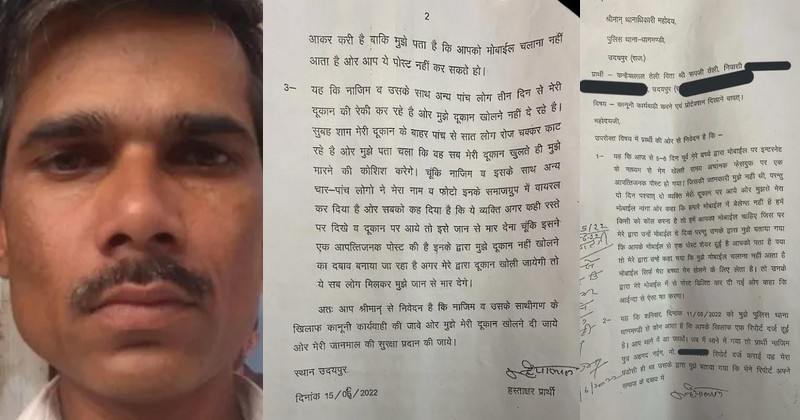 2
आकर करी है बाकि मुझे पता है कि आपको मोबाईल चलाना नहीं
आता है ओर आप ये पोस्ट नहीं कर सकते हो।
3– यह कि नाजिम व उसके साथ अन्य पांच लोग तीन दिन से मेरी
दूकान की रेकी कर रहे है ओर मुझे दूकान खोलने नहीं दे रहे है।
सुबह शाम मेरी दूकान के बाहर पांच से सात लोग रोज चक्कर काट
रहे है ओर मुझे पता चला कि वह सब मेरी दूकान खुलते ही मुझे
मारने की कोशिश करेगे। चूंकि नाजिम व इसके साथ अन्य
चार–पांच लोगो ने मेरा नाम व फोटो इनके समाजग्रुप में वायरल
कर दिया है ओर सबको कह दिया है कि ये व्यक्ति अगर कही रस्ते
पर दिखे व दूकान पर आये तो इसे जान से मार देना चूंकि इसने
एक आपत्तिजनक पोस्ट की है इनके द्वारा मुझे दूकान नहीं खोलने
का दबाव बनाया जा रहा है अगर मेरे द्वारा दूकान खोली जायेगी तो
ये सब लोग मिलकर मुझे जान से मार देंगे।
अतः आप श्रीमान् से निवेदन है कि नाजिम व उसके साथीगण के
खिलाफ कानूनी कार्यवाही की जावे ओर मुझे मेरी दूकान खोलने दी जाये
ओर मेरी जानमाल की सुरक्षा प्रदान की जाये।
स्थान उदयपुर
दिनांक 15/06/2022
हस्ताक्षर प्रार्थी
श्रीमान् थानाधिकारी महोदय,
पुलिस थाना–धानमण्डी,
उदयपुर (राज.)
प्रार्थी – कन्हैयालाल तेली पिता श्री रूपजी तेली, निवासी
उदयपुर
विषय – कानूनी कार्यवाही करने एवं प्रोटेक्शन दिलाने बाबत्।
महोदयजी,
उपरोक्त विषय में प्रार्थी की ओर से निवेदन है कि –
1– यह कि आज से 5–6 दिन पूर्व मेरे बच्चे द्वारा मोबाईल पर इन्टरनेट
के माध्यम से गेम खेलते समय अचानक फेसबुक पर एक
आपत्तिजनक पोस्ट हो गया। जिसकी जानकारी मुझे नहीं थी, परन्तु
दो दिन पश्चात् दो व्यक्ति मेरी दूकान पर आये ओर मुझसे मेरा
मोबाईल मांगा ओर कहा कि हमारे मोबाईल में बेलेन्स नहीं है हमें
किसी को कॉल करना है तो हमें आपका मोबाईल चाहिए जिस पर
मेरे द्वारा उन्हें मोबाईल दे दिया परन्तु उनके द्वारा मुझे बताया गया
कि आपके मोबाईल से एक पोस्ट शेयर हुई है आपको पता है क्या
तो मेरे द्वारा उन्हें कहा गया कि मुझे मोबाईल चलाना नहीं आता है
मोबाईल सिर्फ मेरा बच्चा गेम खेलने के लिए लेता है। तो उनके
द्वारा मेरे मोबाईल में से पोस्ट डिलिट कर दी गई ओर कहा कि
आईन्दा से ऐसा मत करना।
2– यह कि शनिवार, दिनांक 11/06/2022 को मुझे पुलिस थाना
धानमण्डी से फोन आता है कि आपके खिलाफ एक रिपोर्ट दर्ज हुई
है। आप थाने में आ जाओ। जब में थाने में गया तो प्रार्थी नाजिम
रिपोर्ट दर्ज कराई वह मेरा
पडोसी ही था उसके द्वारा मुझे बताया गया कि मेने रिपोर्ट अपने
समाज के दबाव में